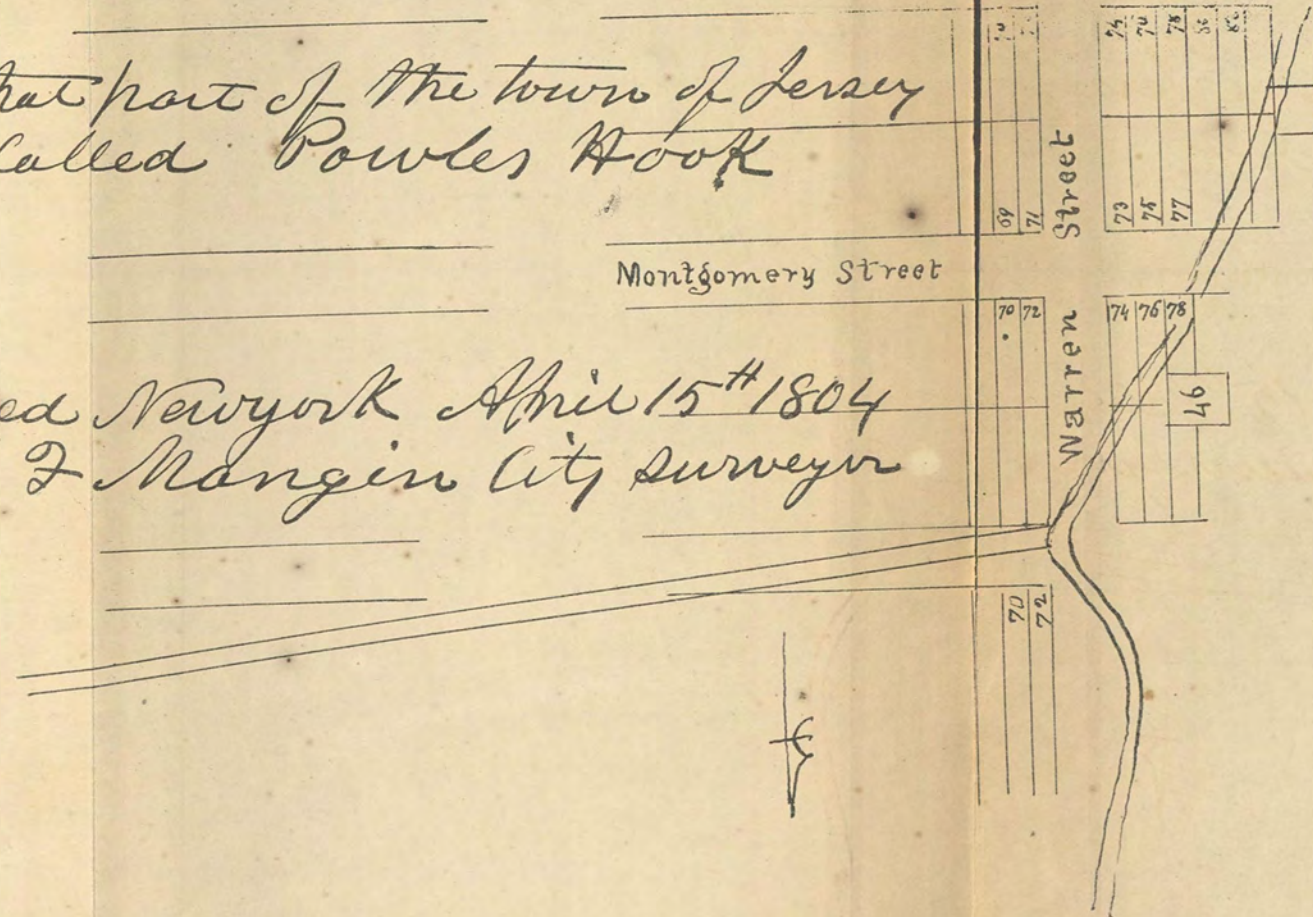 part of the town of Jersey
Called Powles Hook
Montgomery Street
Newyork April 15th 1804
F Mangin City surveyor
Warren Street
69
71
73
75
77
70 72
74 76 78
46
70
72